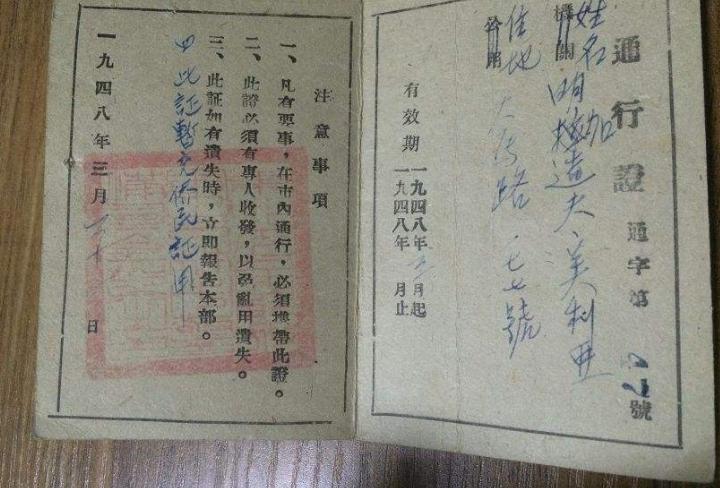 通行證 通字第 27 號
姓名 明擬加造夫 美利亚
機關
住地 大房路一七七號
有效期 一九四八年三月起
一九四八年 月止
注意事項
一、凡有要事，在市內通行，必須携帶此證。
二、此證必須有專人收發，以免亂用遺失。
三、此証如有遺失時，立即報告本部。
四 此証暫充僑民証用
一九四八年三月二十 日